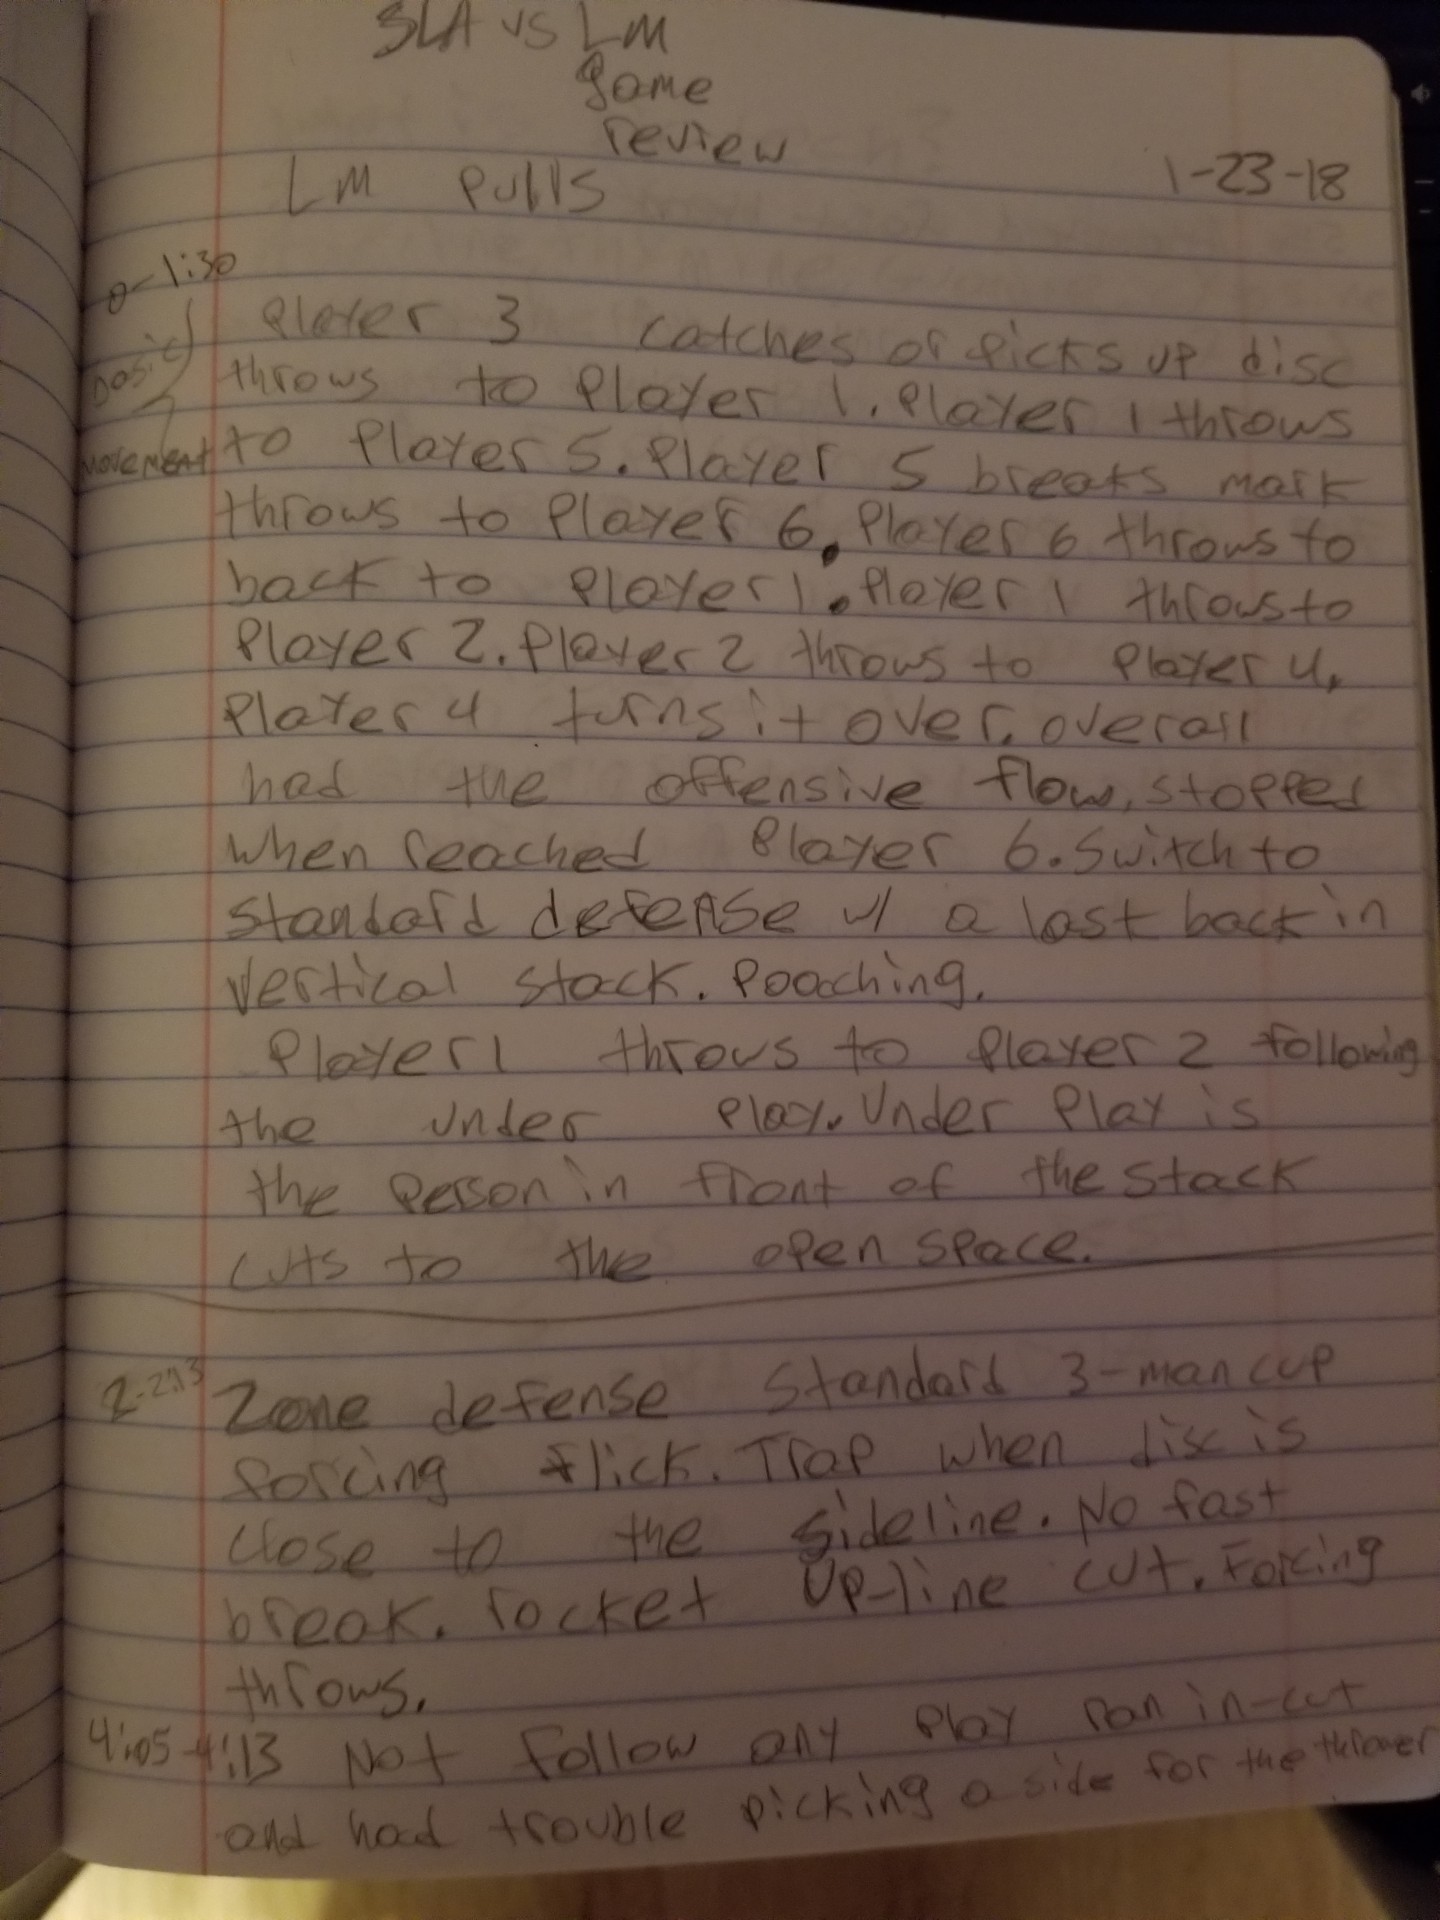 SLA vs LM
game
review
1-23-18
LM Pulls
0-1:30
Player 3 catches or picks up disc
throws to Player 1. Player 1 throws
movement
to Player 5. Player 5 breaks mark
throws to Player 6. Player 6 throws to
back to Player 1. Player 1 throws to
Player 2. Player 2 throws to Player 4.
Player 4 turns it over. overall
had the offensive flow, stopped
when reached Player 6. Switch to
standard defense w/ a last back in
vertical stack. Poaching.
Player 1 throws to Player 2 following
the under Play. Under Play is
the Person in front of the stack
cuts to the open space.
2-2:13
Zone defense Standard 3-man cup
forcing flick. Trap when disc is
close to the sideline. No fast
break. rocket Up-line cut. Forcing
throws.
4:05-4:13 Not follow any Play ran in-cut
and had trouble picking a side for the thrower